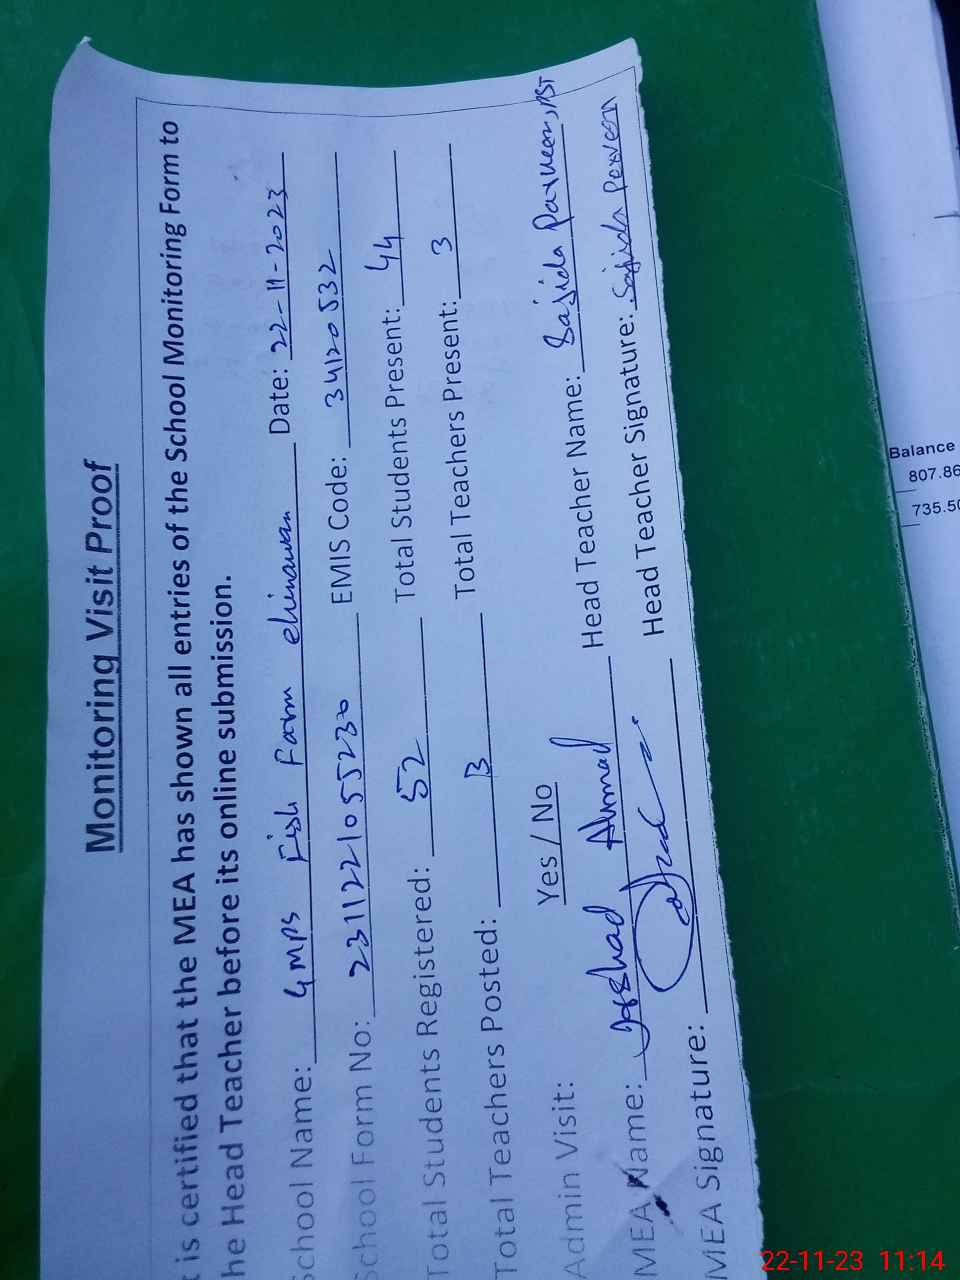 Monitoring Visit Proof
t is certified that the MEA has shown all entries of the School Monitoring Form to
he Head Teacher before its online submission.
School Name: GMPS Fish Farm chinawan Date: 22-11-2023
School Form No: 2311221055230 EMIS Code: 34120532
Total Students Registered: 52 Total Students Present: 44
Total Teachers Posted: 3 Total Teachers Present: 3
Admin Visit: Yes / No
MEA Name: Arshad Ahmad Head Teacher Name: Sajida Parveen, PST
MEA Signature: Head Teacher Signature: Sajida Perveen
Balance
807.86
735.50
22-11-23 11:14